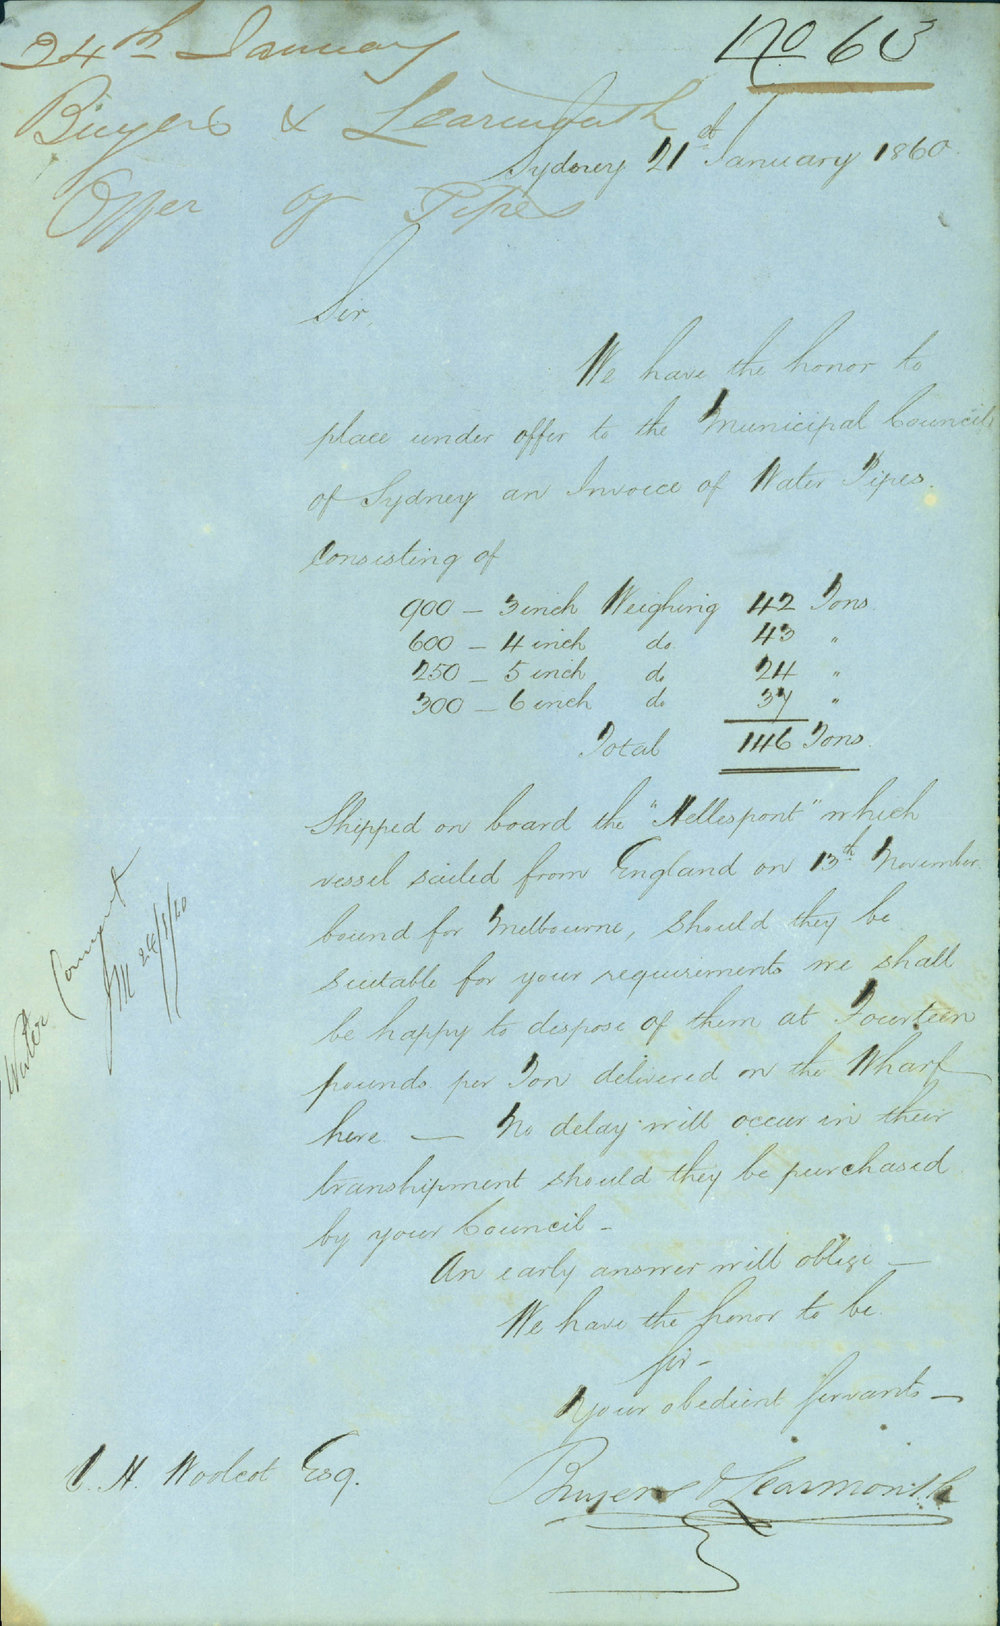 24th January
No 63
Buyers & Learmonth
Sydney 21st January 1860.
Offer of Pipes
Sir,
We have the honor to
place under offer to the Municipal Council
of Sydney an Invoice of Water Pipes.
Consisting of
900 – 3 inch Weighing 42 Tons.
600 – 4 inch do. 43 "
250 – 5 inch do 24 "
300 – 6 inch do 37 "
Total 146 Tons.
Shipped on board the "Hellespont" which
vessel sailed from England on 13th November
bound for Melbourne, should they be
suitable for your requirements we shall
be happy to dispose of them at Fourteen
pounds per Ton delivered on the Wharf
here — No delay will occur in their
transhipment should they be purchased
by your Council –
An early answer will oblige —
We have the honor to be
Sir –
Your obedient Servants —
Buyers & Learmonth
J. H. Woolcot Esq.
Water
24/1/60